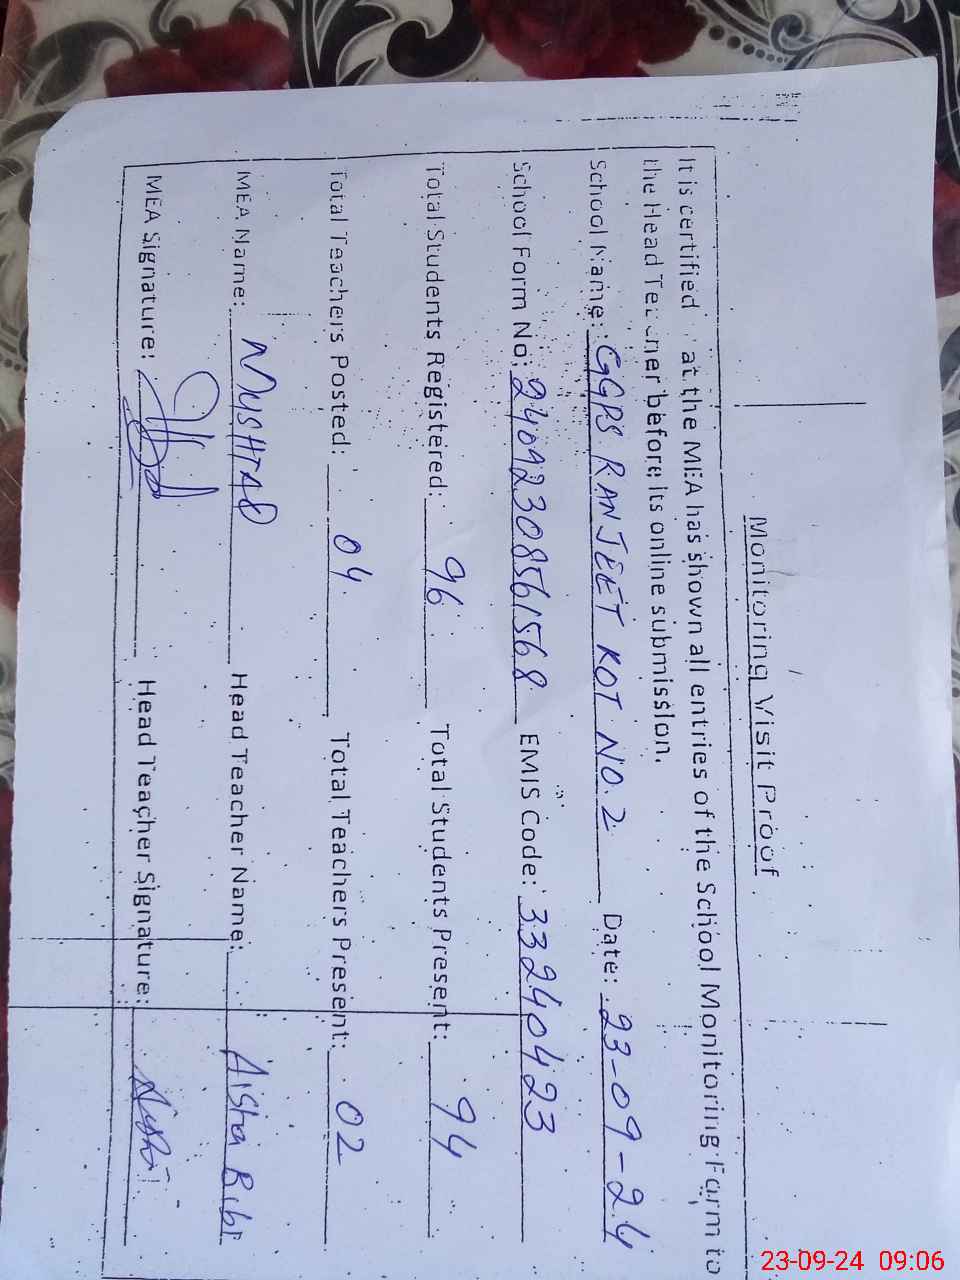 Monitoring Visit Proof
It is certified at the MEA has shown all entries of the School Monitoring Form to
the Head Teacher before its online submission.
School Name: GGPS RANJEET KOT NO.2 Date: 23-09-24
School Form No: 24092308561568 EMIS Code: 33240423
Total Students Registered: 96 Total Students Present: 94
Total Teachers Posted: 04 Total Teachers Present: 02
MEA Name: MUSHTAQ Head Teacher Name: Aisha Bibi
MEA Signature: Head Teacher Signature:
23-09-24 09:06